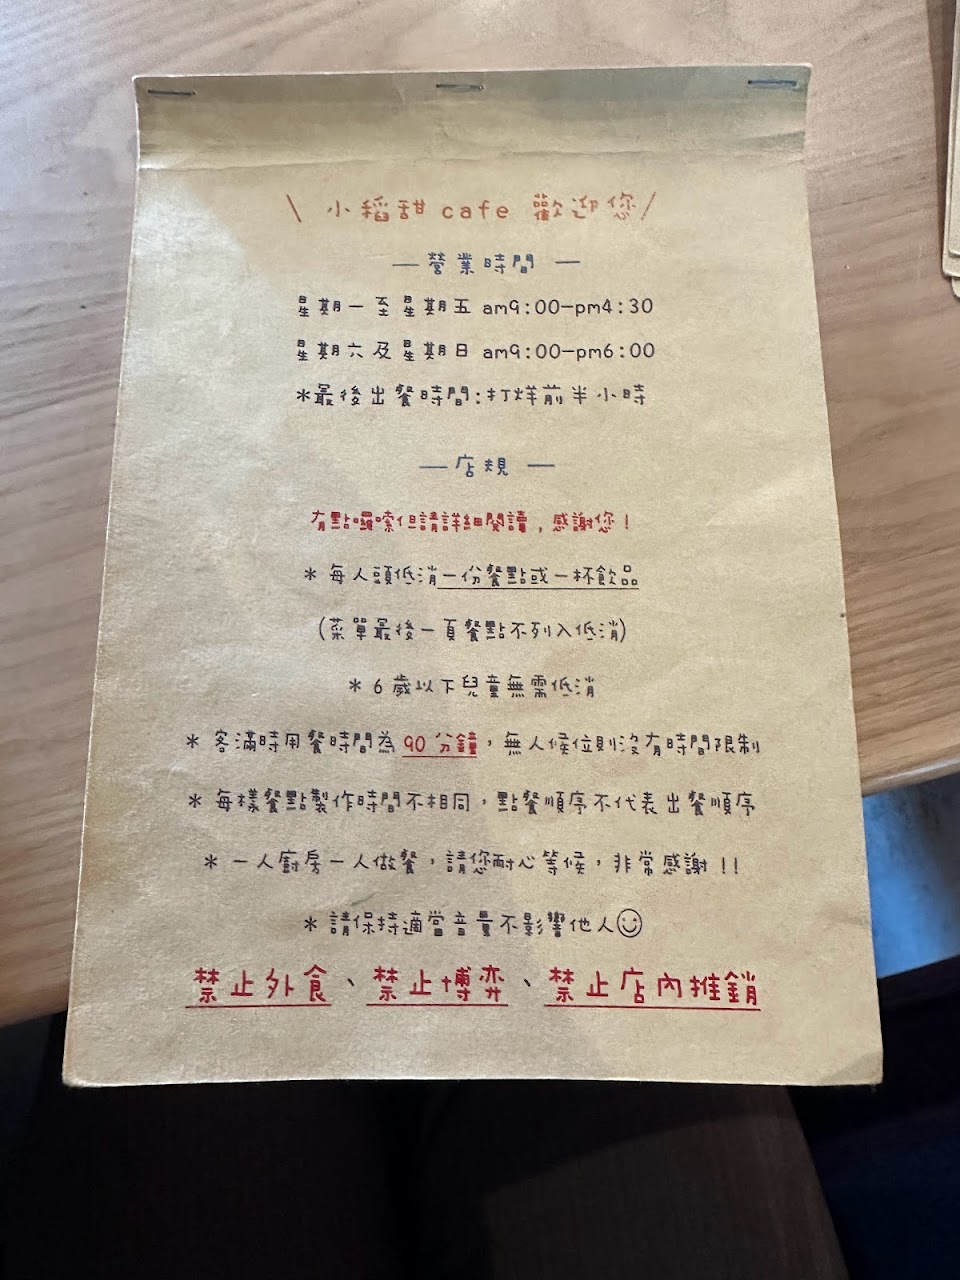 \ 小稻甜 cafe 歡迎您/
— 營業時間 —
星期一至星期五 am9:00-pm4:30
星期六及星期日 am9:00-pm6:00
*最後出餐時間:打烊前半小時
— 店規 —
有點囉嗦但請詳細閱讀,感謝您!
* 每人頭低消一份餐點或一杯飲品
(菜單最後一頁餐點不列入低消)
* 6歲以下兒童無需低消
* 客滿時用餐時間為 90分鐘,無人候位則沒有時間限制
* 每樣餐點製作時間不相同,點餐順序不代表出餐順序
* 一人廚房一人做餐,請您耐心等候,非常感謝!!
* 請保持適當音量不影響他人☺
禁止外食、禁止博弈、禁止店內推銷